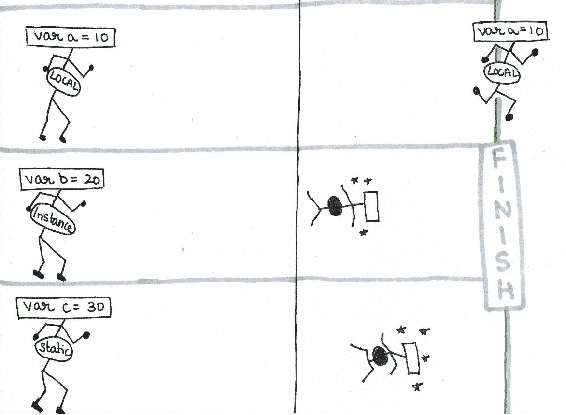 var a = 10
LOCAL
var a=10
LOCAL
var b = 20
Instance
FINISH
var c = 30
Static